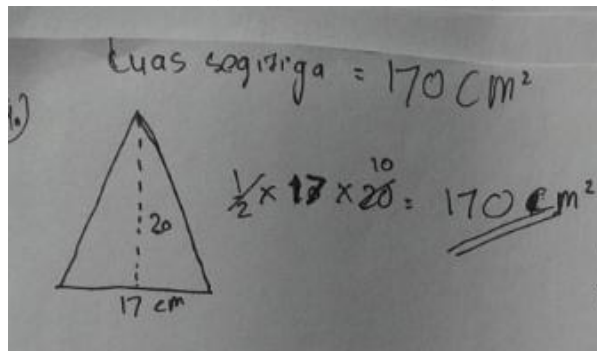 Luas segitiga = 170 cm²
20
17 cm
½ × 17 × 20 = 170 cm²
10